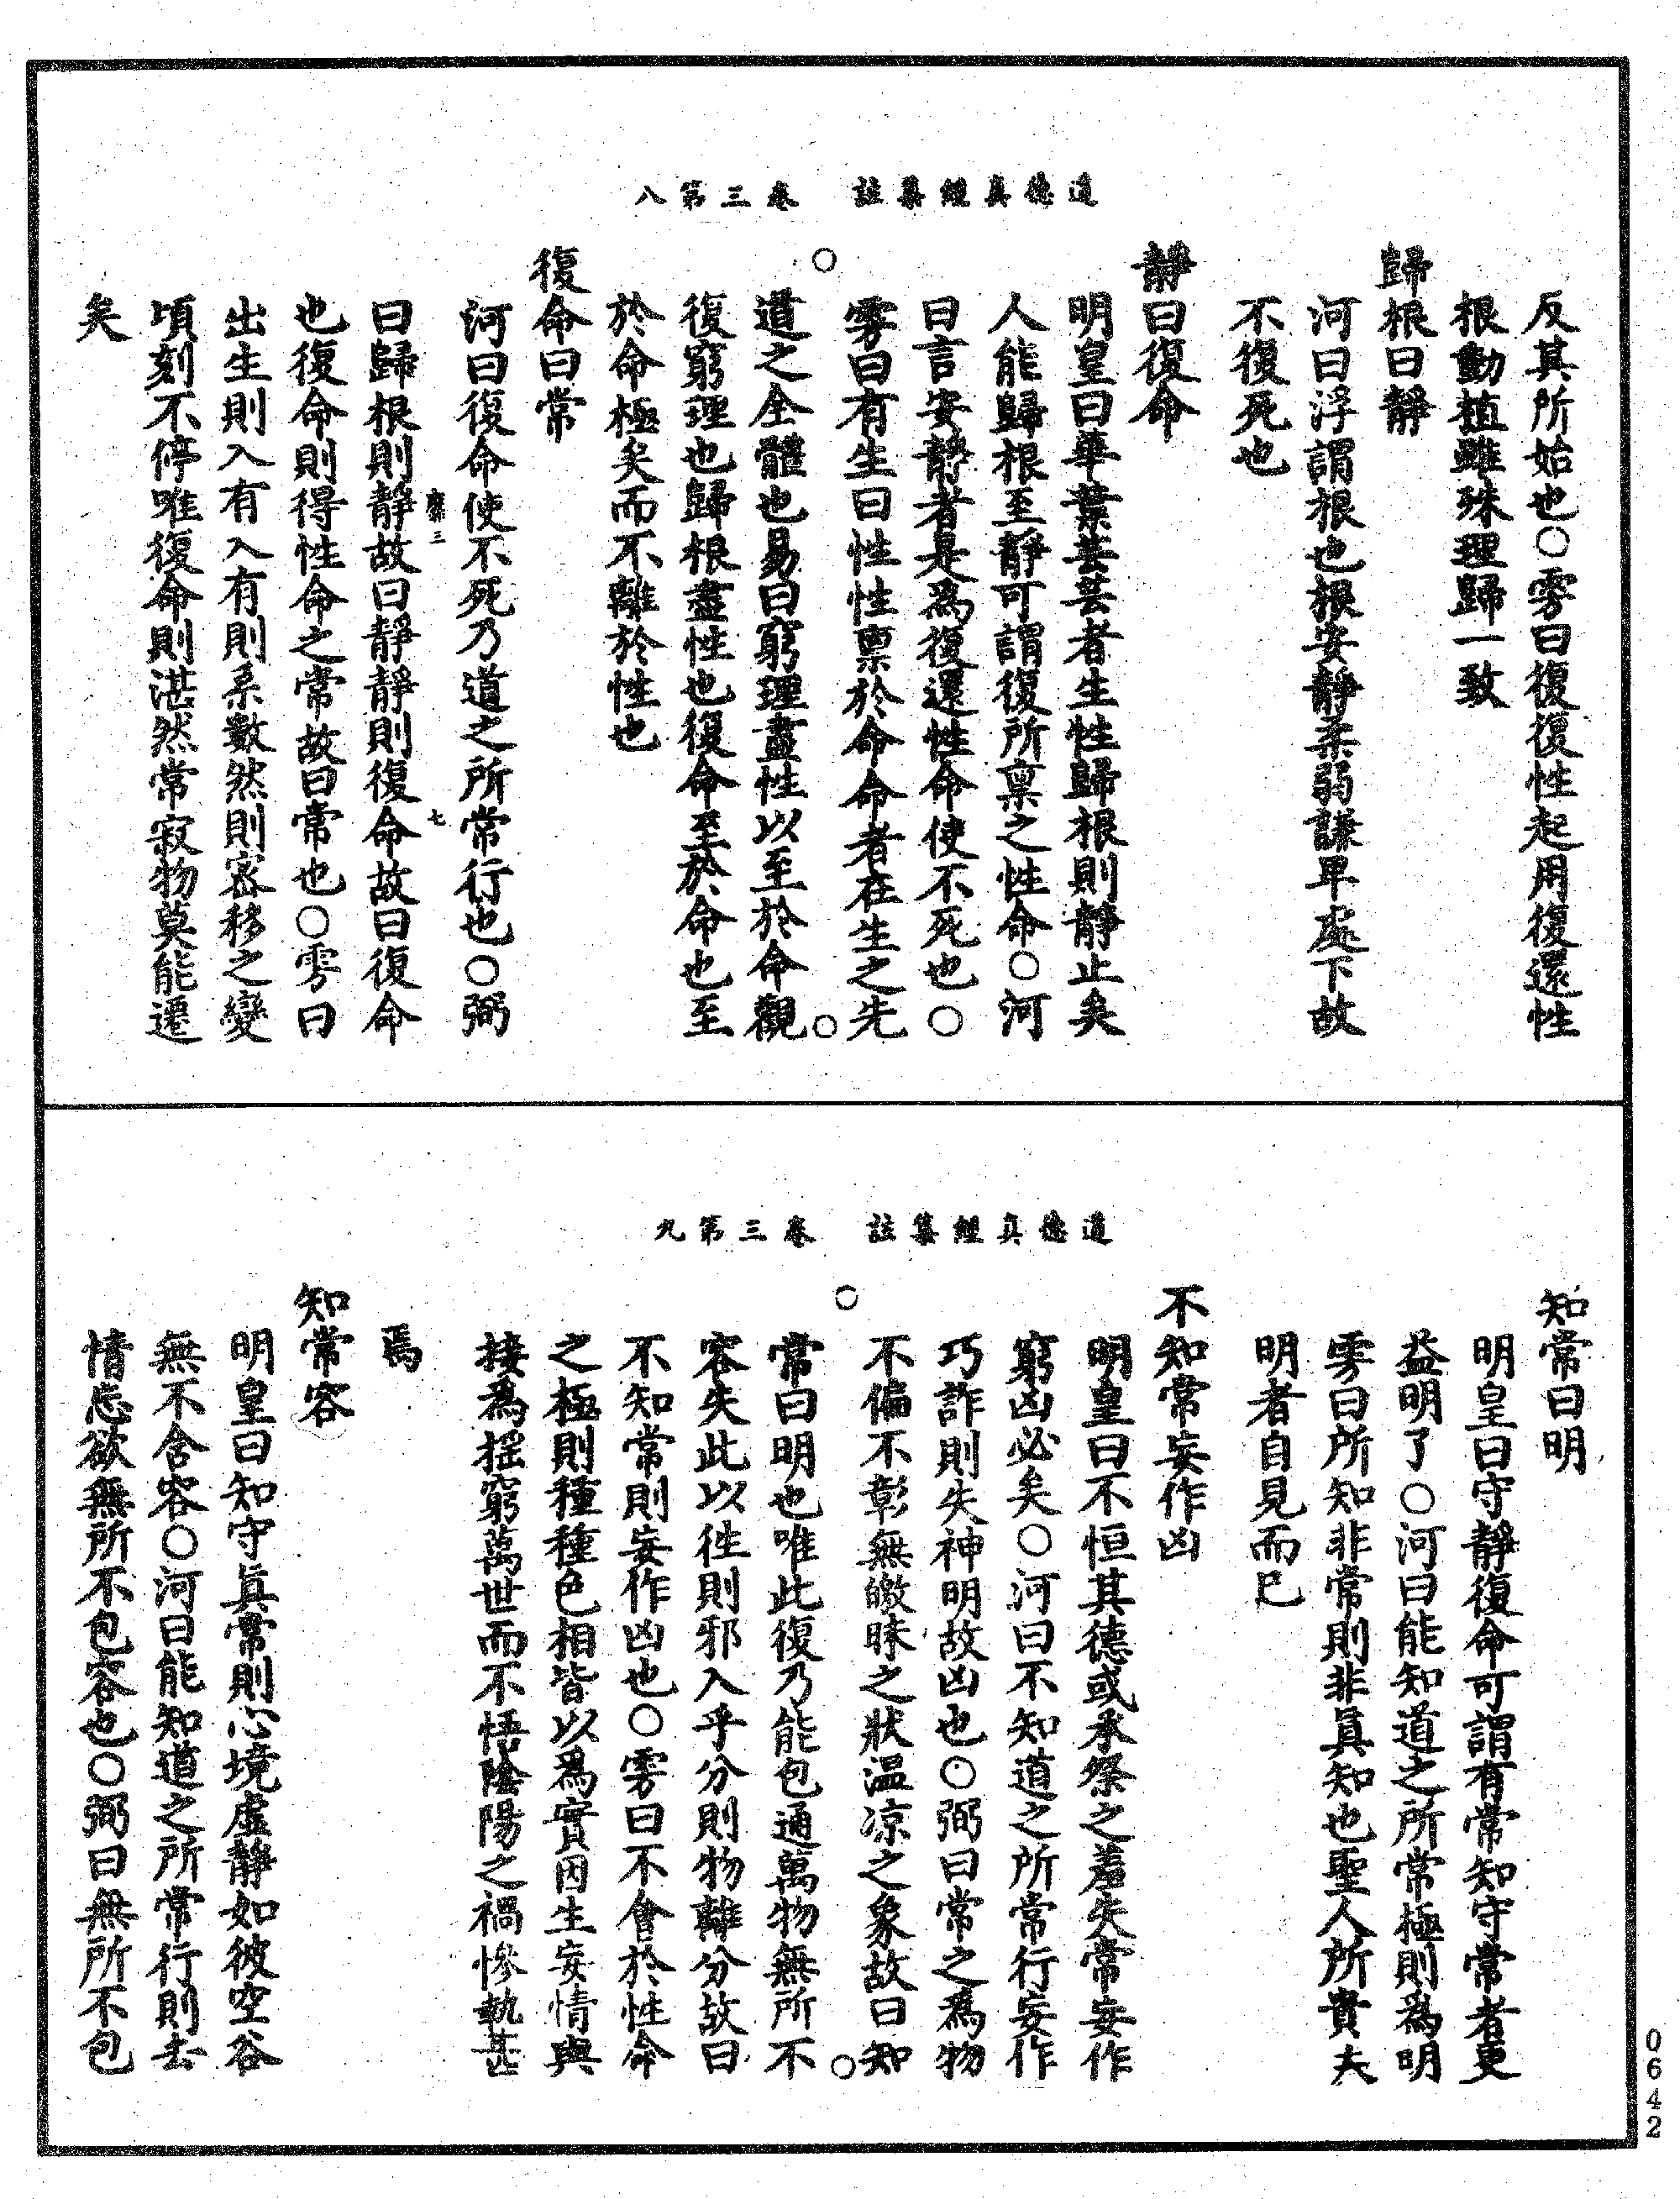 道德真經集註　卷三第八
反其所始也○雱曰復復性起用復還性
根動植雖殊理歸一致
歸根曰靜
河曰浮謂根也根安靜柔弱謙卑處下故
不復死也
靜曰復命
明皇曰華葉芸芸者生性歸根則靜止矣
人能歸根至靜可謂復所稟之性命○河
曰言安靜者是爲復還性命使不死也○
雱曰有生曰性性稟於命命者在生之先
道之全體也易曰窮理盡性以至於命觀
復窮理也歸根盡性也復命至於命也至
於命極矣而不離於性也
復命曰常
河曰復命使不死乃道之所常行也○弼
三　七
曰歸根則靜故曰靜靜則復命故曰復命
也復命則得性命之常故曰常也○雱曰
出生則入有入有則系數然則密移之變
頃刻不停唯復命則湛然常寂物莫能遷
矣
道德真經集註　卷三第九
知常曰明
明皇曰守靜復命可謂有常知守常者更
益明了○河曰能知道之所常極則爲明
雱曰所知非常則非眞知也聖人所貴夫
明者自見而已
不知常妄作凶
明皇曰不恒其德或承祭之羞失常妄作
窮凶必矣○河曰不知道之所常行妄作
巧詐則失神明故凶也○弼曰常之爲物
不偏不彰無皦昧之狀溫凉之象故曰知
常曰明也唯此復乃能包通萬物無所不
容失此以徃則邪入乎分則物離分故曰
不知常則妄作凶也○雱曰不會於性命
之極則種種色相皆以爲實因生妄情與
接爲搖窮萬世而不悟陰陽之禍慘孰甚
焉
知常容
明皇曰知守眞常則心境虛靜如彼空谷
無不含容○河曰能知道之所常行則去
情忘欲無所不包容也○弼曰無所不包
0642